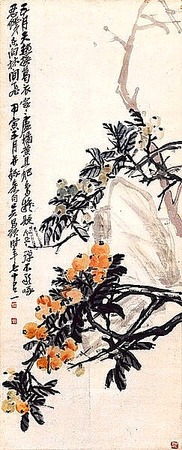 五月天熱換葛衣家家盧橘黃且肥鳥疑金彈不敢啄
忍饑空向林間飛甲寅五月吳昌碩時年七十一